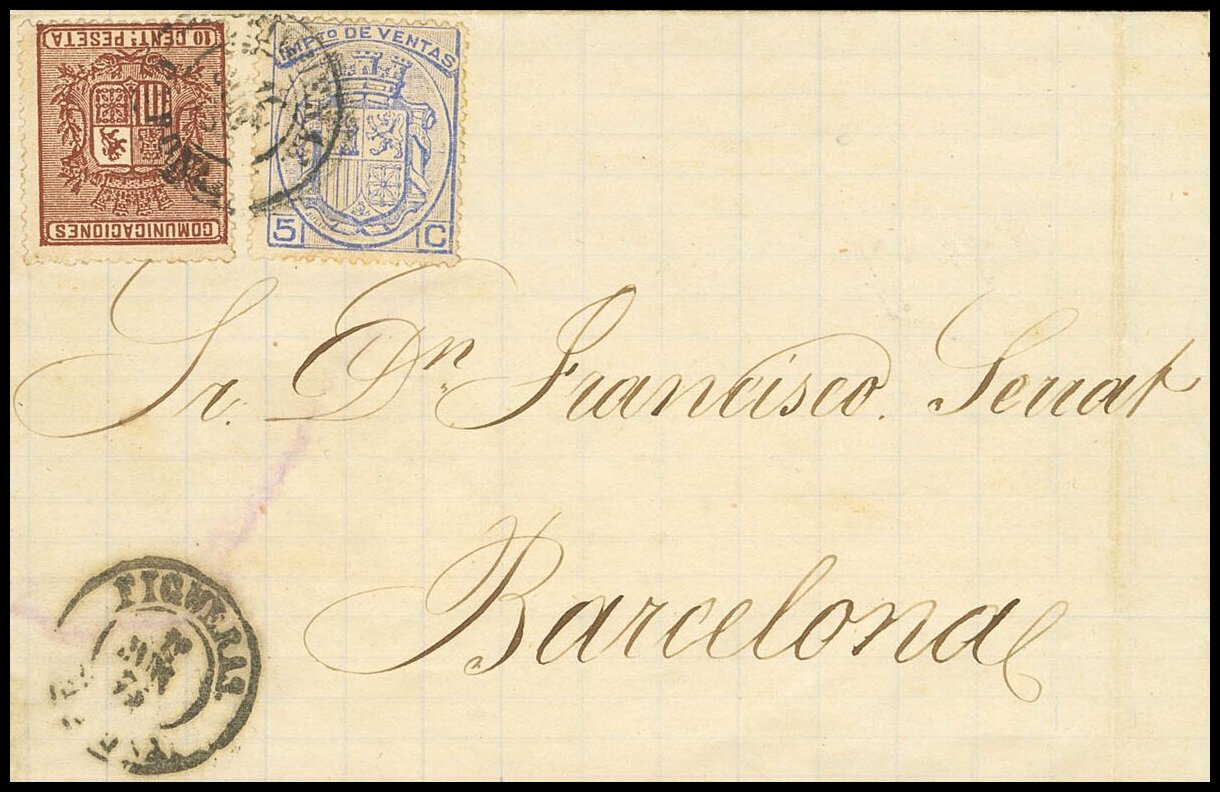 10 CENT.ˢ PESETA
COMUNICACIONES
IMPTº DE VENTAS
5 C
Sr. Dn. Francisco Serrat
Barcelona
FIGUERAS.